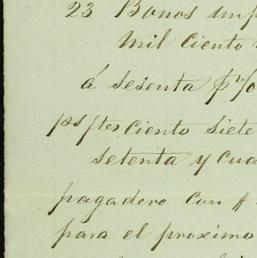 23 Bonos imp
mil ciento
á sesenta $ %
ps ftes ciento siete
setenta y cua
pagadero con #
para el proximo